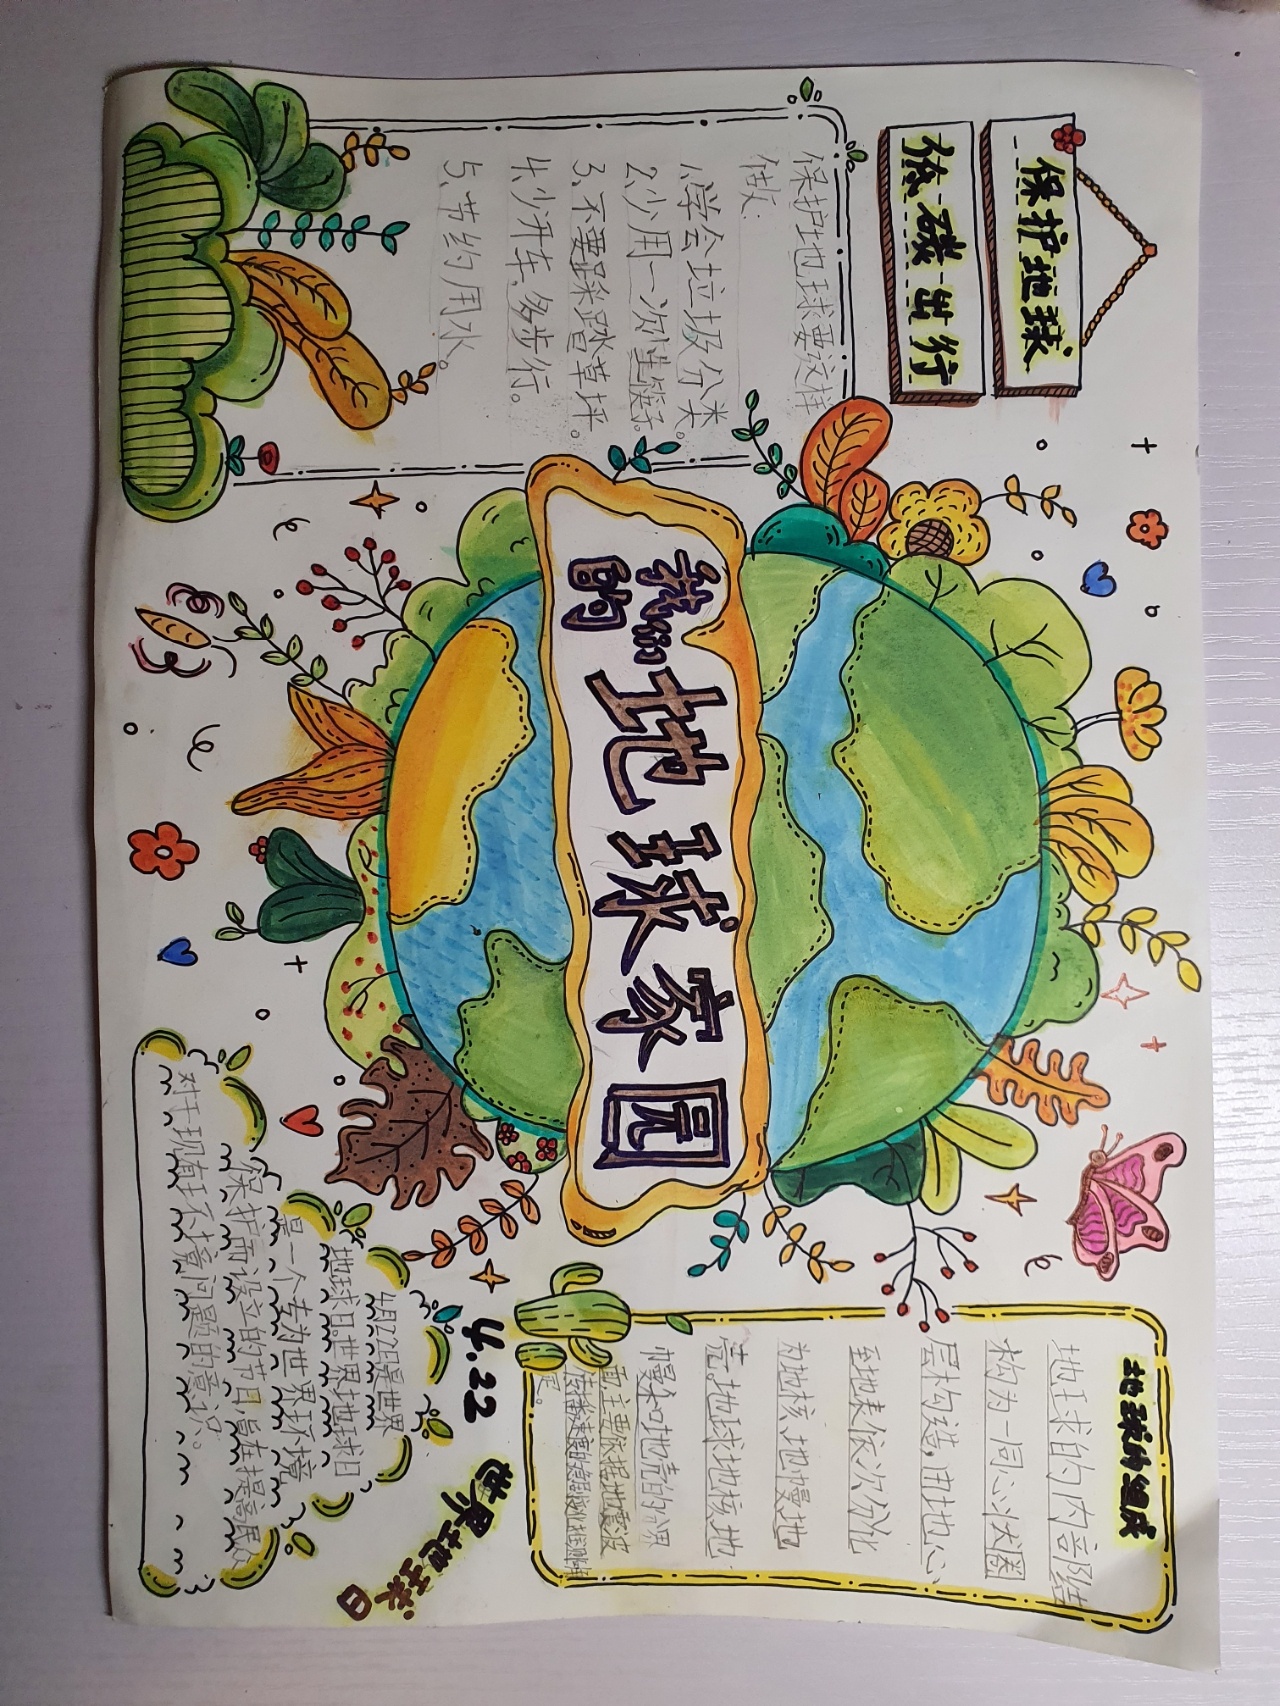 保护地球
低碳出行
保护地球要这样
做:
1.学会垃圾分类。
2.少用一次性筷子。
3.不要踩踏草坪。
4.少开车,多步行。
5.节约用水。
我们
的地球家园
地球的组成
地球的内部结
构为一同心状圈
层构造,由地心
至地表依次分化
为地核、地幔、地
壳。地球地核、地
幔和地壳的分界
面,主要依据地震波
传播速度的急剧变化推测确
定。
4.22
世界地球日
4月22日是世界
地球日。世界地球日
是一个专为世界环境
保护而设立的节日,旨在提高民众
对于现有环境问题的意识。